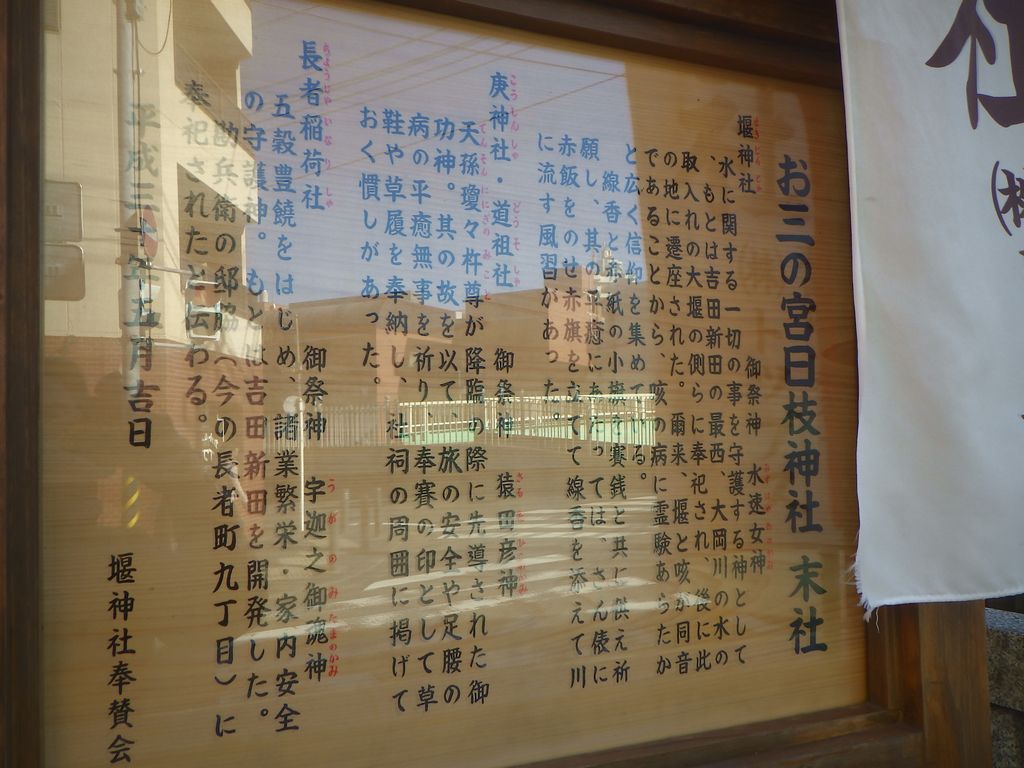 お三の宮日枝神社 末社
堰神社 御祭神 水速女神
水に関する一切の事を守護する神として
、もとは吉田新田の最西、大岡川の水の
取入れの大堰の側らに奉祀され、後に此
の地に遷座された。爾来、堰と咳が同音
であることから、咳の病に霊験あらたか
と広く信仰を集めている。
線香と赤紙の小旗を賽銭と共に供え祈
願し、其の平癒にあたっては、さん俵に
赤飯をのせ赤旗を立てて線香を添えて川
に流す風習があった。
庚神社・道祖神社 御祭神 猿田彦神
天孫瓊々杵尊が降臨の際に先導された御
功神。其の故を以て、旅の安全や足腰の
病の平癒無事を祈り、奉賽の印として草
鞋や草履を奉納し、社祠の周囲に掲げて
おく慣しがあった。
長者稲荷社 御祭神 宇迦之御魂神
五穀豊饒をはじめ、諸業繁栄・家内安全
の守護神。もとは吉田新田を開発した。
勘兵衛の邸脇(今の長者町九丁目)に
奉祀されたと伝わる。
平成三十年五月吉日
堰神社奉賛会